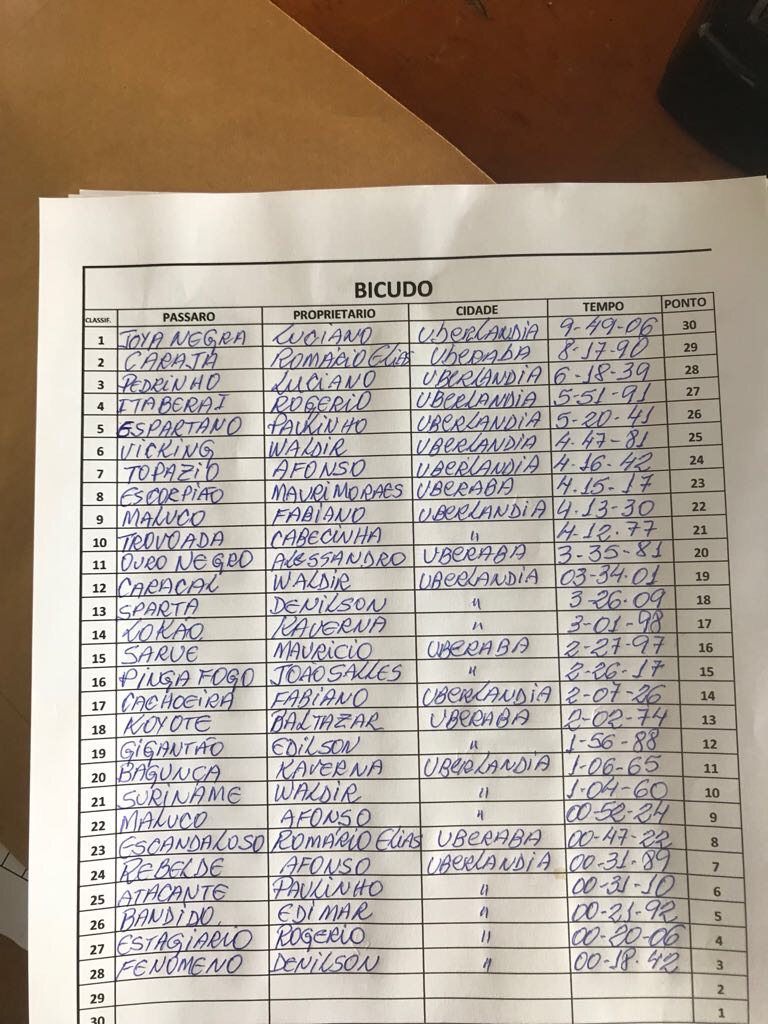 BICUDO
CLASSIF. PASSARO PROPRIETARIO CIDADE TEMPO PONTO
1 JOYA NEGRA LUCIANO UBERLANDIA 9-49-06 30
2 CARAJÁ ROMARIO Elias UBERABA 8-17-90 29
3 PEDRINHO LUCIANO UBERLANDIA 6-18-39 28
4 ITABERAI ROGERIO UBERLANDIA 5-51-91 27
5 ESPARTANO PAULINHO UBERLANDIA 5-20-41 26
6 VICKING WALDIR UBERLANDIA 4-47-81 25
7 TOPAZIO AFONSO UBERLANDIA 4-16-42 24
8 ESCORPIÃO MAURI MORAES UBERABA 4.15-17 23
9 MALUCO FABIANO UBERLANDIA 4-13-30 22
10 TROVOADA CABECINHA " 4-12.77 21
11 OURO NEGRO ALESSANDRO UBERABA 3-35-81 20
12 CARACAL WALDIR UBERLANDIA 03-34.01 19
13 SPARTA DENILSON " 3-26.09 18
14 LOKÃO KAVERNA " 3-01-98 17
15 SARUE MAURICIO UBERABA 2-27-97 16
16 PINGA FOGO JOÃO SALLES " 2-26-17 15
17 CACHOEIRA FABIANO UBERLANDIA 2-07-26 14
18 KOYOTE BALTAZAR UBERABA 2-02-74 13
19 GIGANTÃO EDILSON " 1-56-88 12
20 BAGUNÇA KAVERNA UBERLANDIA 1-06-65 11
21 SURINAME WALDIR " 1-04-60 10
22 MALUCO AFONSO " 00-52-24 9
23 ESCANDALOSO ROMARIO Elias UBERABA 00-47-22 8
24 REBELDE AFONSO UBERLANDIA 00-31-89 7
25 ATACANTE PAULINHO " 00-31-10 6
26 BANDIDO EDIMAR " 00-21-92 5
27 ESTAGIARIO ROGERIO " 00-20-06 4
28 FENOMENO DENILSON " 00-18-42 3
29 2
30 1